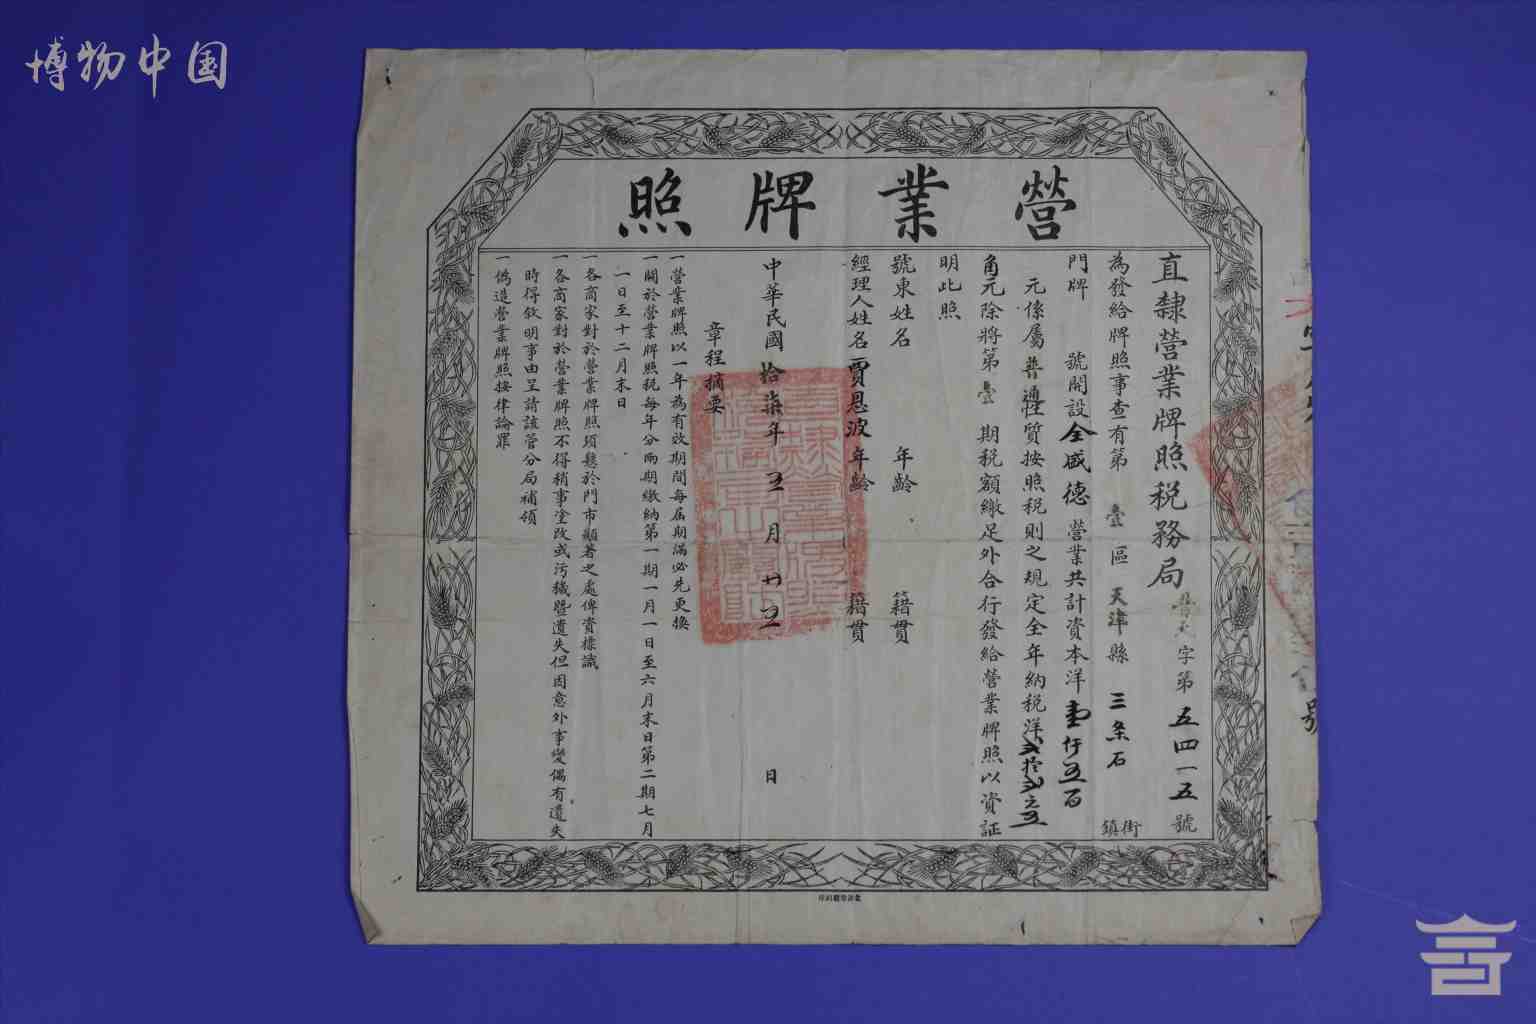 博物中国
營業牌照
直隸營業牌照税務局
字第五四一五號
為發給牌照事查有第壹區天津縣三条石
街
鎮
門牌 號開設全盛德營業共計資本洋壹仟五百
元係屬普通性質按照税則之規定全年納税洋弍拾弍元五
角元除將第壹期税額繳足外合行發給營業牌照以資証
明此照
號東姓名 年齡 籍貫
經理人姓名賈恩波年齡 籍貫
中華民國拾柒年五月廿五日
章程摘要
一營業牌照以一年為有效期間每届期滿必先更換
一關於營業牌照税每年分兩期繳納第一期一月一日至六月末日第二期七月
一日至十二月末日
一各商家對於營業牌照須懸於門市顯著之處俾資標識
一各商家對於營業牌照不得稍事塗改或污穢曁遺失但因意外事變偶有遺失
時得敘明事由呈請該管分局補領
一偽造營業牌照按律論罪